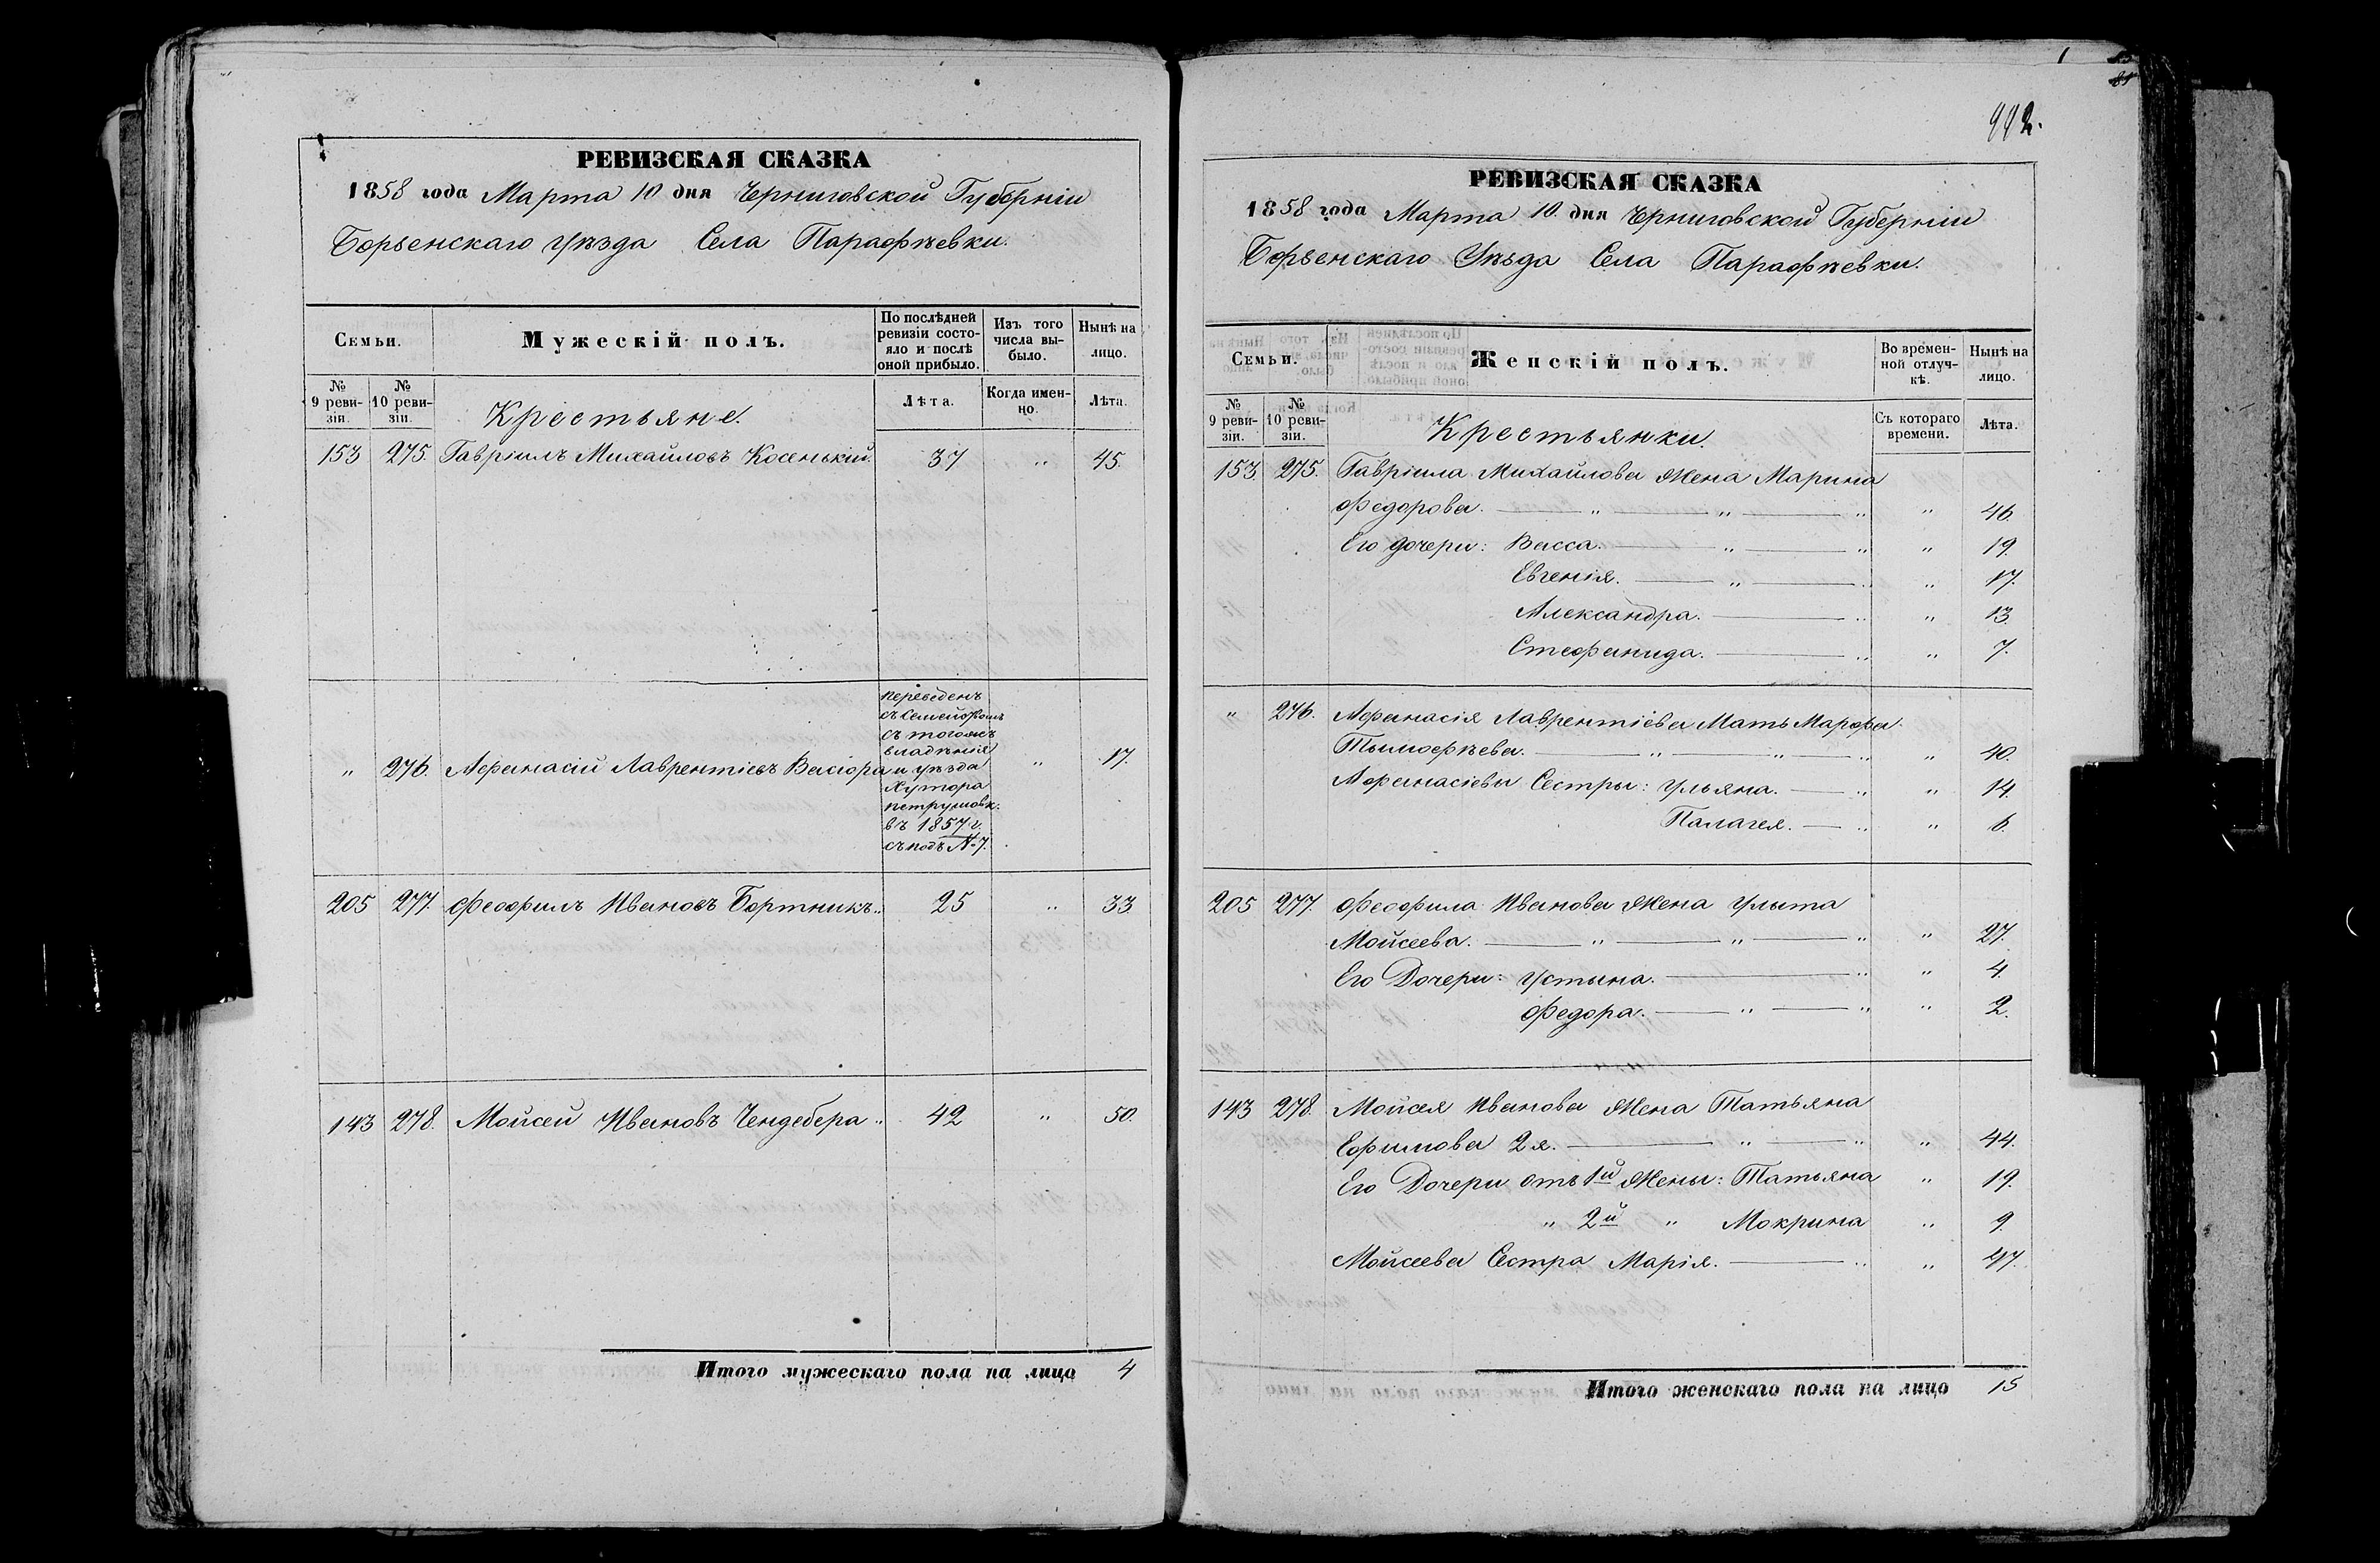 РЕВИЗСКАЯ СКАЗКА
1858 года Марта 10 дня Черниговской Губерніи
Борзенскаго Уѣзда Села Парафѣевки.
Семьи.
Мужескій полъ.
По послѣдней ревизіи состояло и послѣ оной прибыло.
Изъ того числа выбыло.
Нынѣ на лицо.
№ 9 ревизіи.
№ 10 ревизіи.
Крестьяне.
Лѣта.
Когда именно.
Лѣта.
153 275. Гавріилъ Михайловъ Косенький. 37 " 45.
" 276. Афанасій Лаврентіевъ Васюра " 17.
переведенъ
съ семействомъ
съ тогожъ
владѣнія
и уѣзда
Хутора
въ 1857 г.
съ подъ № 7.
205 277. Феофилъ Ивановъ Бортникъ.. 25 " 33
143 278. Мойсей Ивановъ Чендебера .. 42 " 50.
Итого мужескаго пола на лицо 4
442.
РЕВИЗСКАЯ СКАЗКА
1858 года Марта 10. дня Черниговской Губерніи
Борзенскаго Уѣзда Села Парафѣевки.
Семьи.
Женскій полъ.
Во временной отлучкѣ.
Нынѣ на лицо.
№ 9 ревизіи.
№ 10 ревизіи.
Крестьянки.
Съ котораго времени.
Лѣта.
153. 275. Гавріила Михайлова Жена Марина
Федорова. " 46.
Его дочери: Васса. " 19.
Евгенія. " 17.
Александра. " 13.
Стефанида. " 7.
" 276. Афанасія Лаврентіева Мать Марфа
Тымофѣева. " 40.
Афанасіевы Сестры: Ульяна. " 14.
Палагея. " 6.
205 277. Феофила Иванова Жена Улыта
Мойсеева. " 27.
Его Дочери: Устына. " 4.
Федора. " 2.
143 278. Мойсея Иванова Жена Татьяна
Ефимова 2я. " 44.
Его Дочери отъ 1й Жены: Татьяна " 19.
" 2й " Мокрина " 9.
Мойсеева Сестра Марія. " 47.
Итого женскаго пола на лицо 15